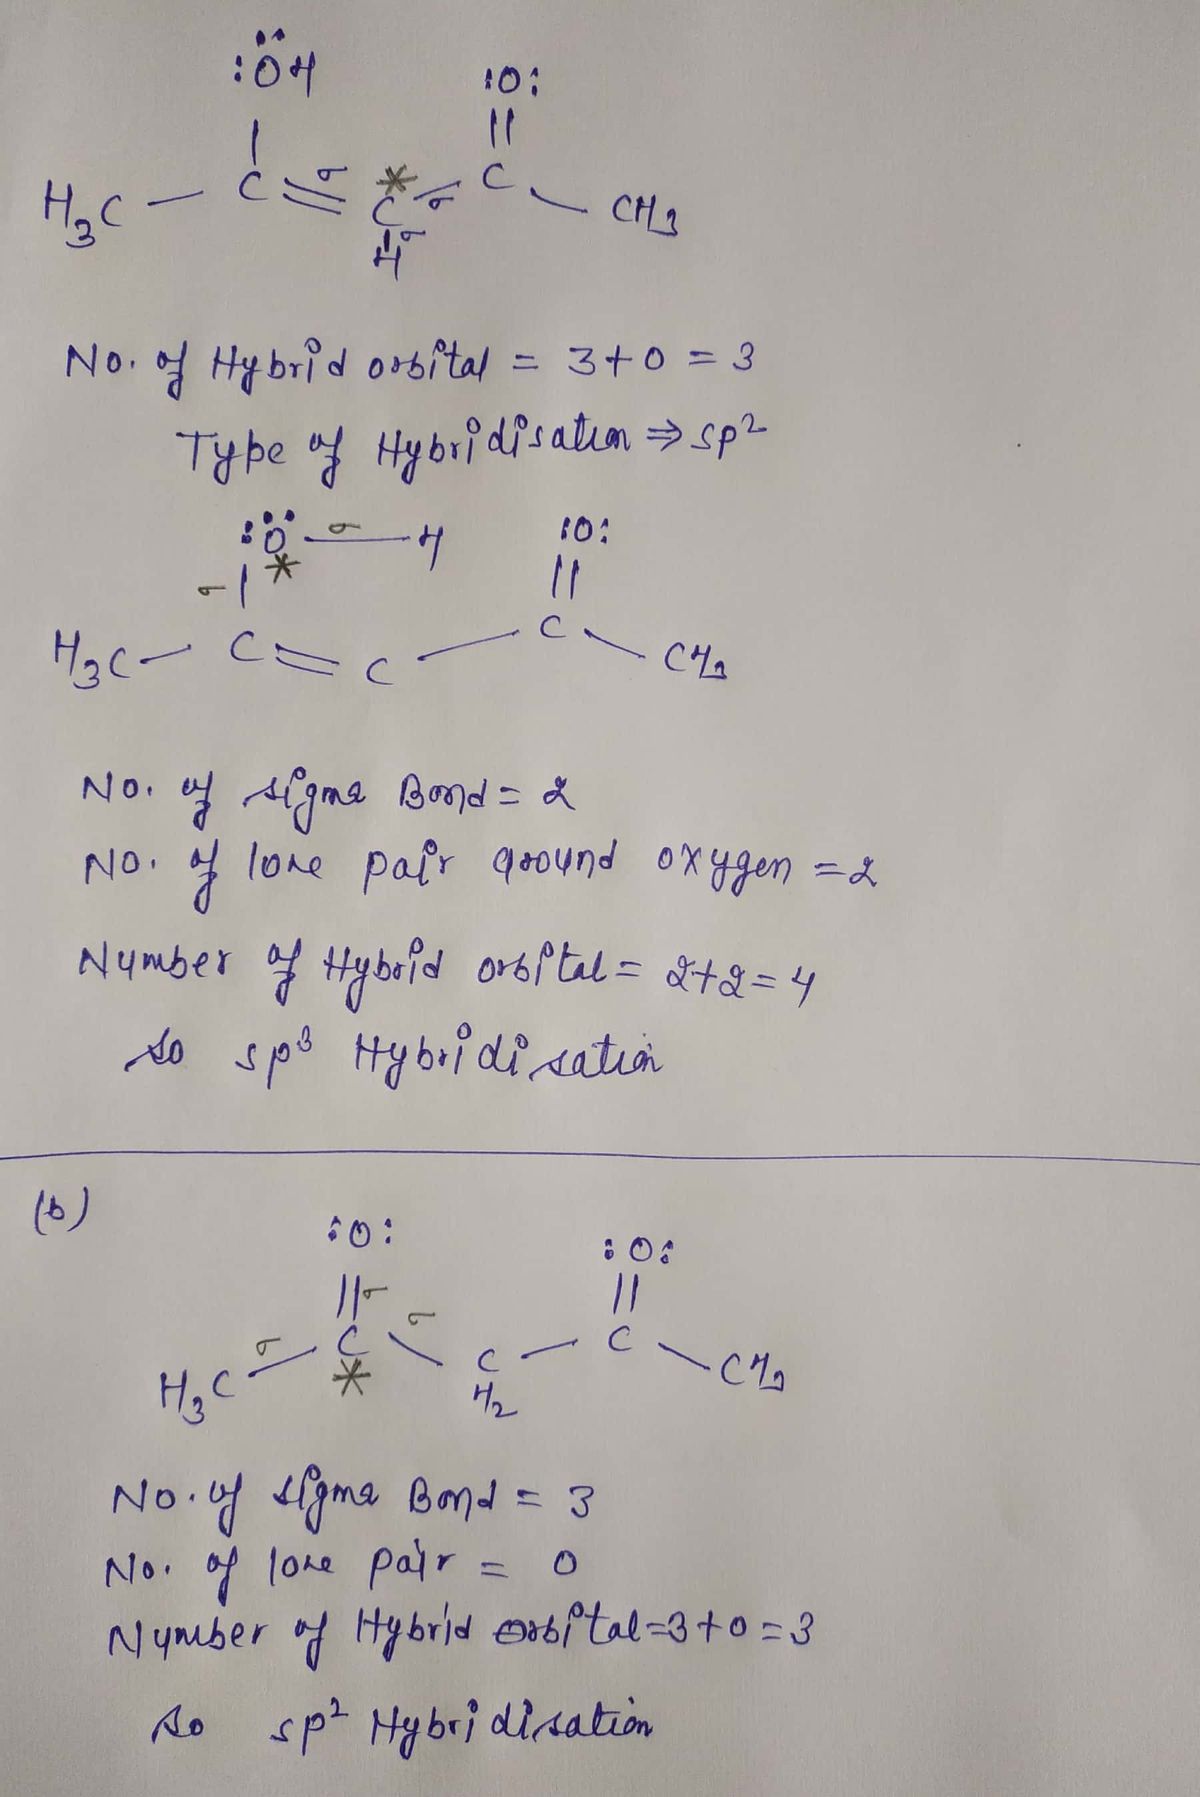 :ÖH :O:
H₃C - C = C* - C - CH₃
H
No. of Hybrid orbital = 3+0 = 3
Type of Hybridisation ⇒ sp²
:Ö σ H :O:
σ *
H₃C - C = C - C - CH₃
No. of sigma Bond = 2
No. of lone pair around oxygen = 2
Number of Hybrid orbital = 2+2 = 4
so sp³ Hybridisation
(b)
:O: :O:
σ σ σ
H₃C - C - C - C - CH₃
* H₂
No. of sigma Bond = 3
No. of lone pair = 0
Number of Hybrid orbital = 3+0 = 3
so sp² Hybridisation